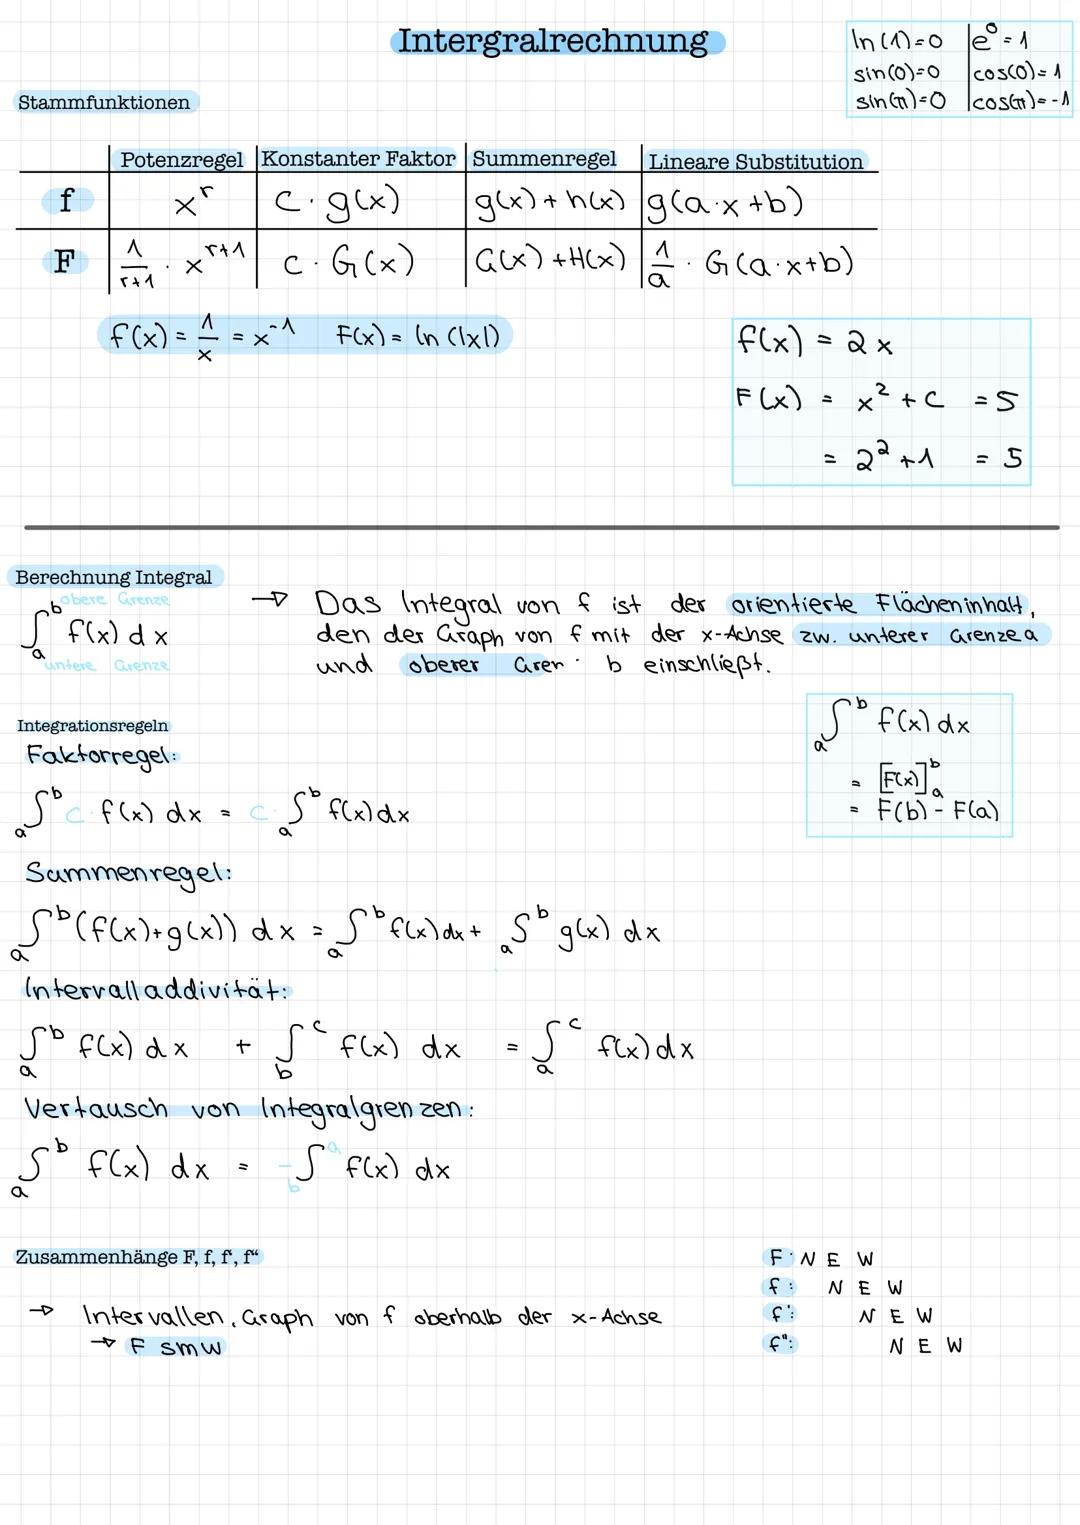 Intergralrechnung
ln(1)=0 | e⁰ = 1
sin(0)=0 | cos(0)= 1
sin(π)=0 | cos(π)= -1
Stammfunktionen
Potenzregel | Konstanter Faktor | Summenregel | Lineare Substitution
f | x^r | c · g(x) | g(x) + h(x) | g(a·x+b)
F | 1/(r+1) · x^(r+1) | c · G(x) | G(x) + H(x) | 1/a · G(a·x+b)
f(x) = 1/x = x^-1 F(x) = ln(|x|)
f(x) = 2x
F(x) = x² + C = 5
= 2² + 1 = 5
Berechnung Integral
obere Grenze
∫_a^b f(x) dx
untere Grenze
→ Das Integral von f ist der orientierte Flächeninhalt,
den der Graph von f mit der x-Achse zw. unterer Grenze a
und oberer Gren b einschließt.
Integrationsregeln
Faktorregel:
∫_a^b c · f(x) dx = c · ∫_a^b f(x) dx
∫_a^b f(x) dx
= [F(x)]_a^b
= F(b) - F(a)
Summenregel:
∫_a^b (f(x)+g(x)) dx = ∫_a^b f(x) dx + ∫_a^b g(x) dx
Intervalladdivität:
∫_a^b f(x) dx + ∫_b^c f(x) dx = ∫_a^c f(x) dx
Vertausch von Integralgrenzen:
∫_a^b f(x) dx = -∫_b^a f(x) dx
Zusammenhänge F, f, f', f“
→ Intervallen, Graph von f oberhalb der x-Achse
→ F smw
F: N E W
f: N E W
f': N E W
f": N E W